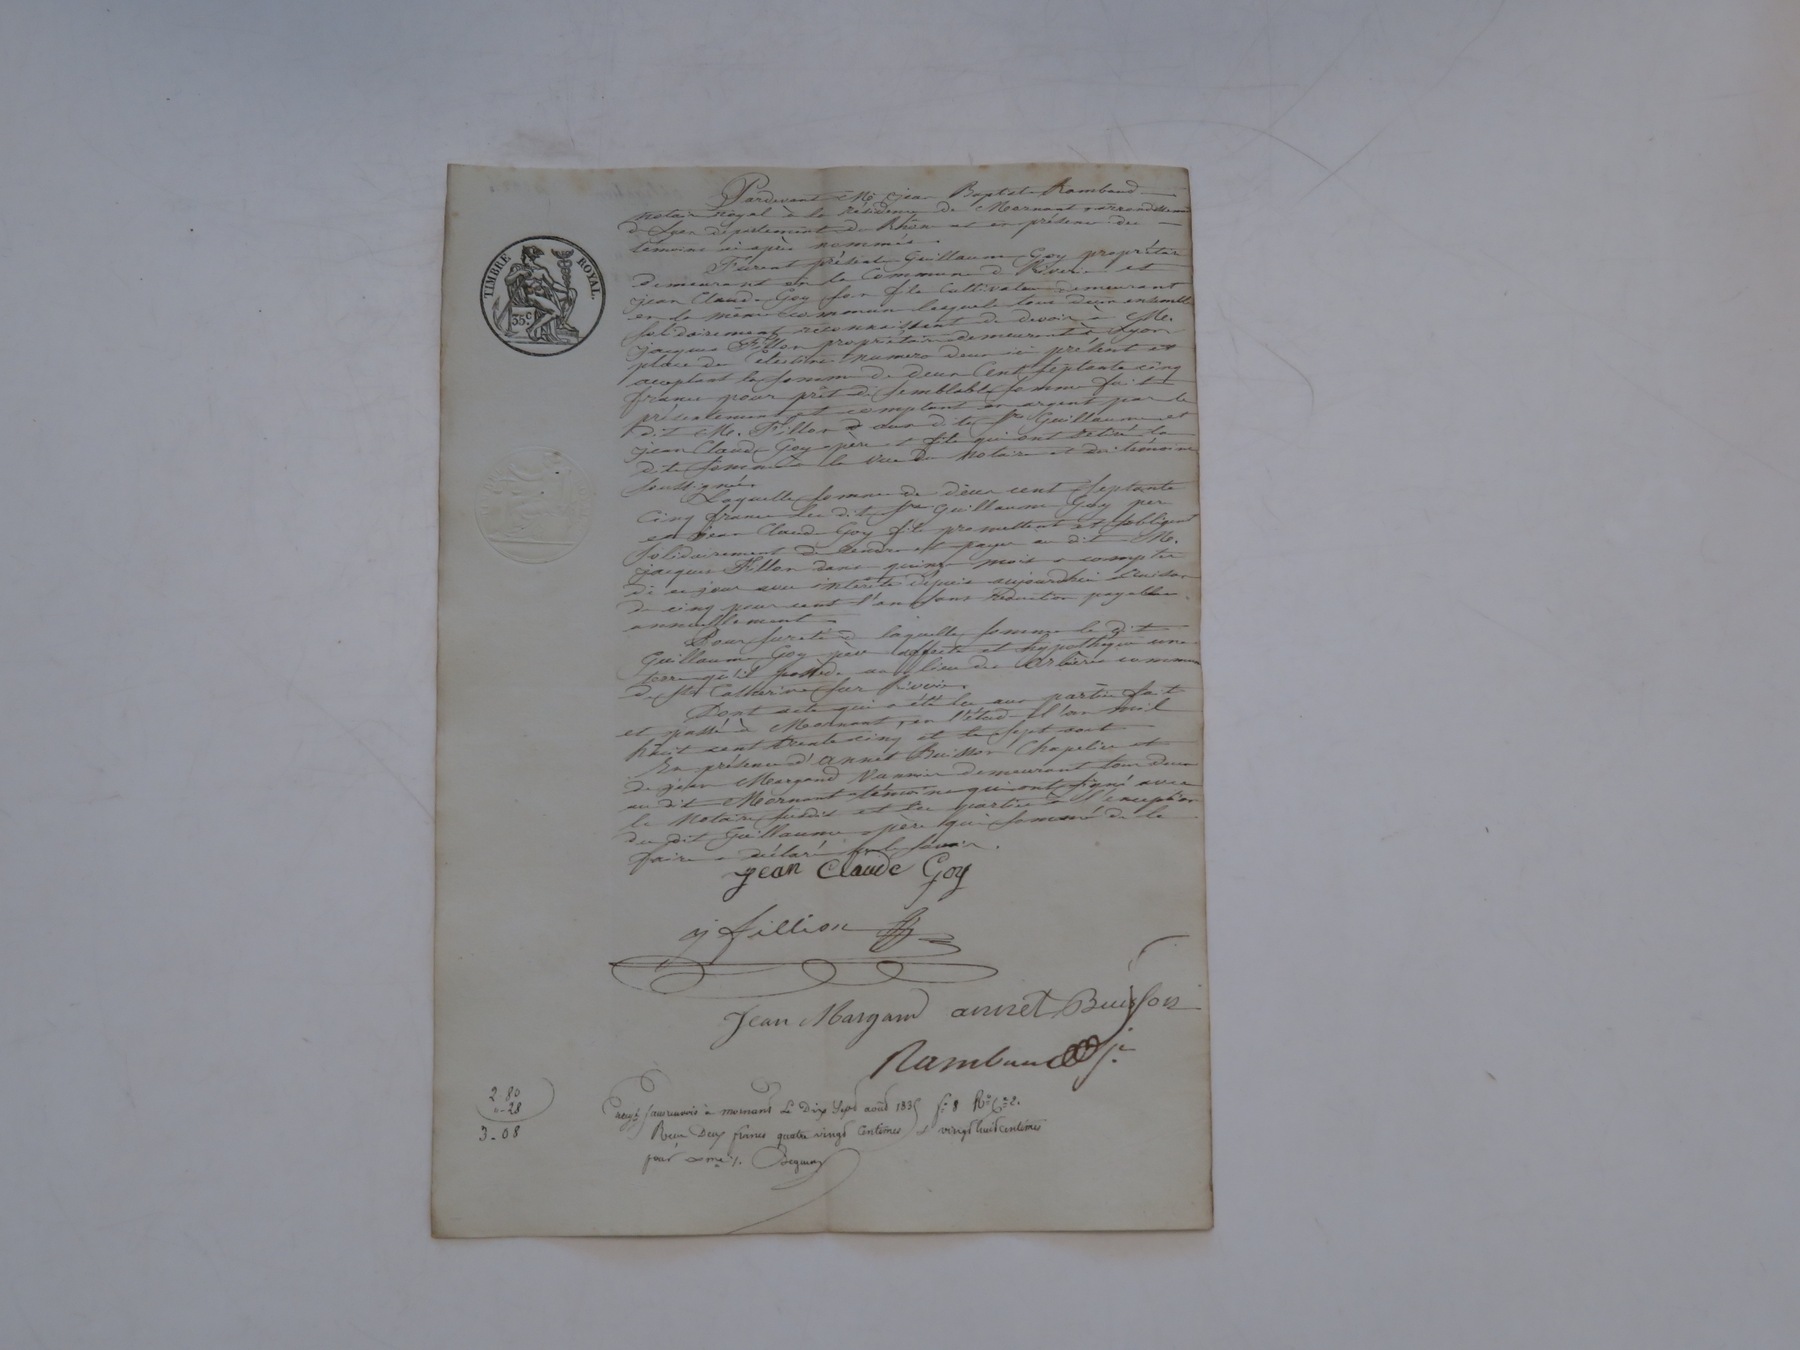 Pardevant Me Jean Baptiste Rambaud
Notaire royal à la résidence de Mornant arrondissement
de Lyon département du Rhône et en présence des
témoins ci après nommés.
TIMBRE ROYAL.
35 c.
Furent présent Guillaume Goy propriétaire
demeurant en la Commune de Riverie et
jean Claude Goy son fils Cultivateur demeurant
en la même commune lesquels tous deux ensemble
solidairement reconnaissent de devoir à M.
jacques Fillion propriétaire demeurant à Lyon
place des Célestins numero deux ici présent et
acceptant la somme de deux Cent septante cinq
francs pour prêt de semblable somme fait
présentement et comptant en argent par le
dit M. Fillion aux dits Srs Guillaume et
jean Claude Goy père et fils qui ont retiré la
dite somme à la vue du Notaire et des témoins
soussignés.
Laquelle somme de deux cent septante
cinq francs les dit Srs Guillaume Goy père
et Jean Claude Goy fils promettent et s'obligent
solidairement de rendre et payer au dit M.
jacques Fillion dans quinze mois a compter
de ce jour avec intérêts depuis aujourdhui à raison
de cinq pour cent l'an sans réduction payables
annuellement
Pour sureté de laquelle somme le dit
Guillaume Goy père affecte et hypothèque une
terre qu'il possède au lieu des commune
de Ste Catherine sur Riverie.
Dont acte qui a été lu aux parties fait
et passé à Mornant en l'étude l'an mil
huit cent trente cinq et le sept août
En présence d'annet Buisson Chapelier et
de jean Margand Vannier demeurant tous deux
au dit Mornant témoins qui ont signé avec
le Notaire susdit et les parties à l'exception
du dit Guillaume père qui sommé de le
faire a déclaré ne le savoir.
jean Claude Goy
j fillion
Jean Margand annet Buisson
Rambaud
2-80
0-28
3-08
à mornant Le Dix Sept août 1835 fo 8 Ro Ce 2.
Reçu Deux francs quatre vingt Centimes et vingt huit centimes
pour xme %.